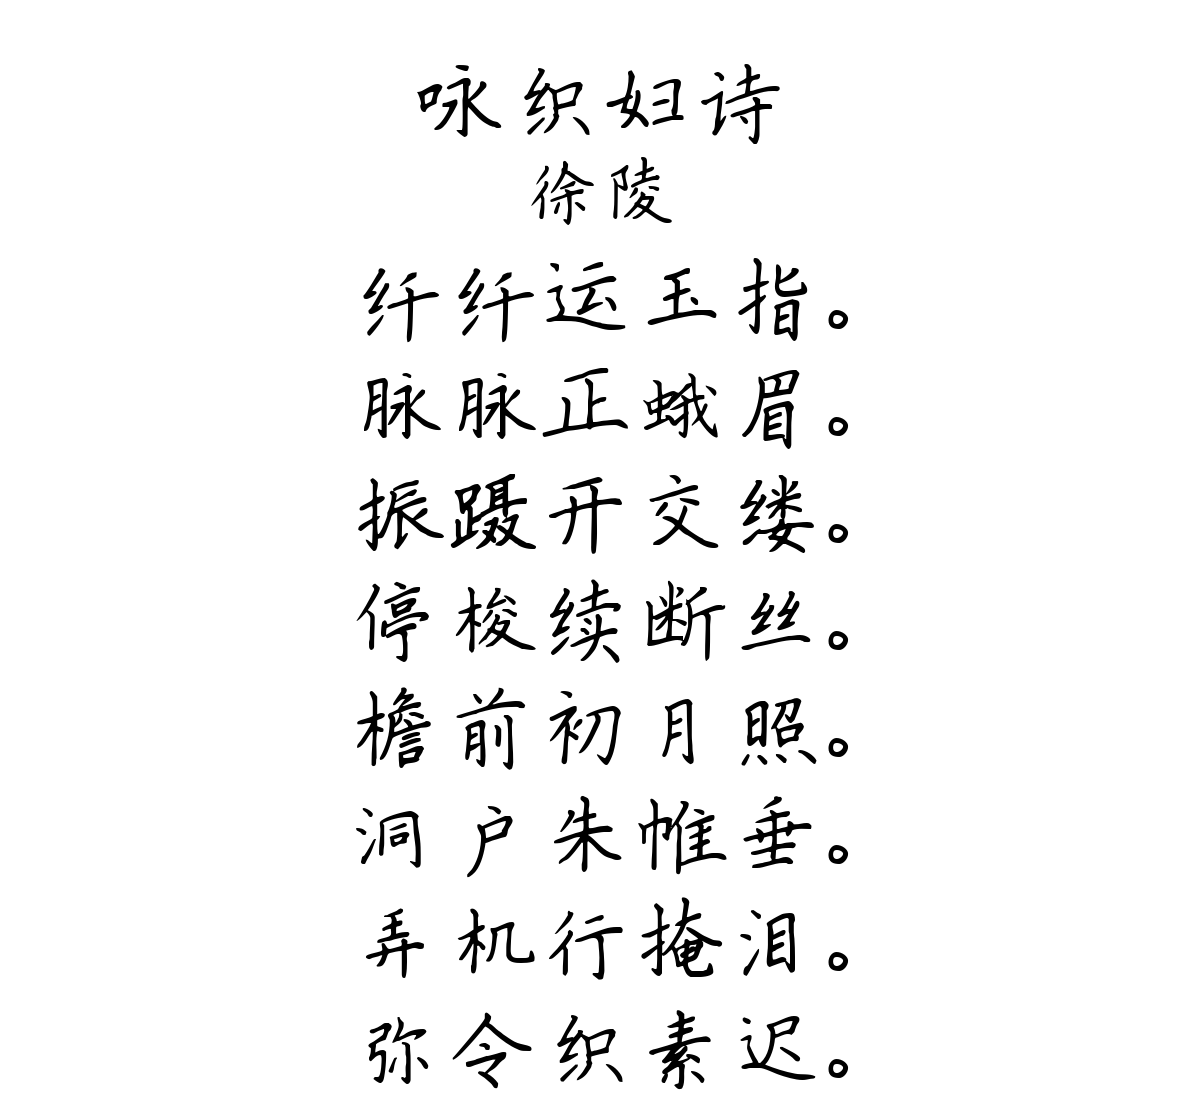 咏织妇诗
徐陵
纤纤运玉指。
脉脉正蛾眉。
振蹑开交缕。
停梭续断丝。
檐前初月照。
洞户朱帷垂。
弄机行掩泪。
弥令织素迟。